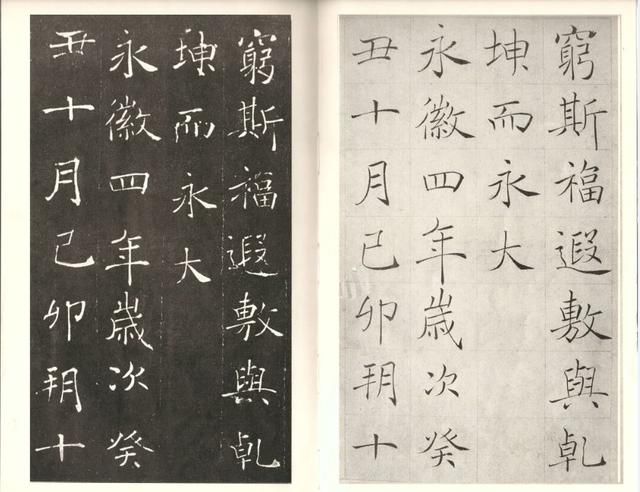 窮斯福遐敷與乹
坤而永大
永徽四年歲次癸
丑十月己卯朔十
窮斯福遐敷與乹
坤而永大
永徽四年歲次癸
丑十月己卯朔十